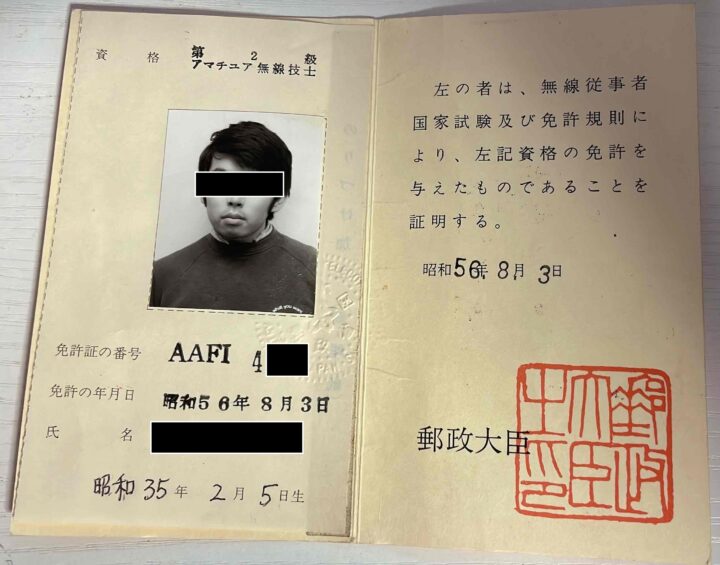 資格 第2級
アマチュア無線技士
免許証の番号 AAFI 4
免許の年月日 昭和56年8月3日
氏名
昭和35年2月5日生
左の者は、無線従事者
国家試験及び免許規則に
より、左記資格の免許を
与えたものであることを
証明する。
昭和56年8.月3日
郵政大臣
郵政
大臣
之印